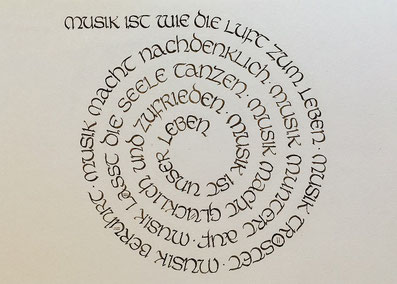 MUSIK IST WIE DIE LUFT ZUM LEBEN · MUSIK TRÖSTET · MUSIK BERÜHRT · MUSIK MACHT NACHDENKLICH · MUSIK MUNTERT AUF · MUSIK LÄSST DIE SEELE TANZEN · MUSIK MACHT GLÜCKLICH UND ZUFRIEDEN · MUSIK IST UNSER LEBEN